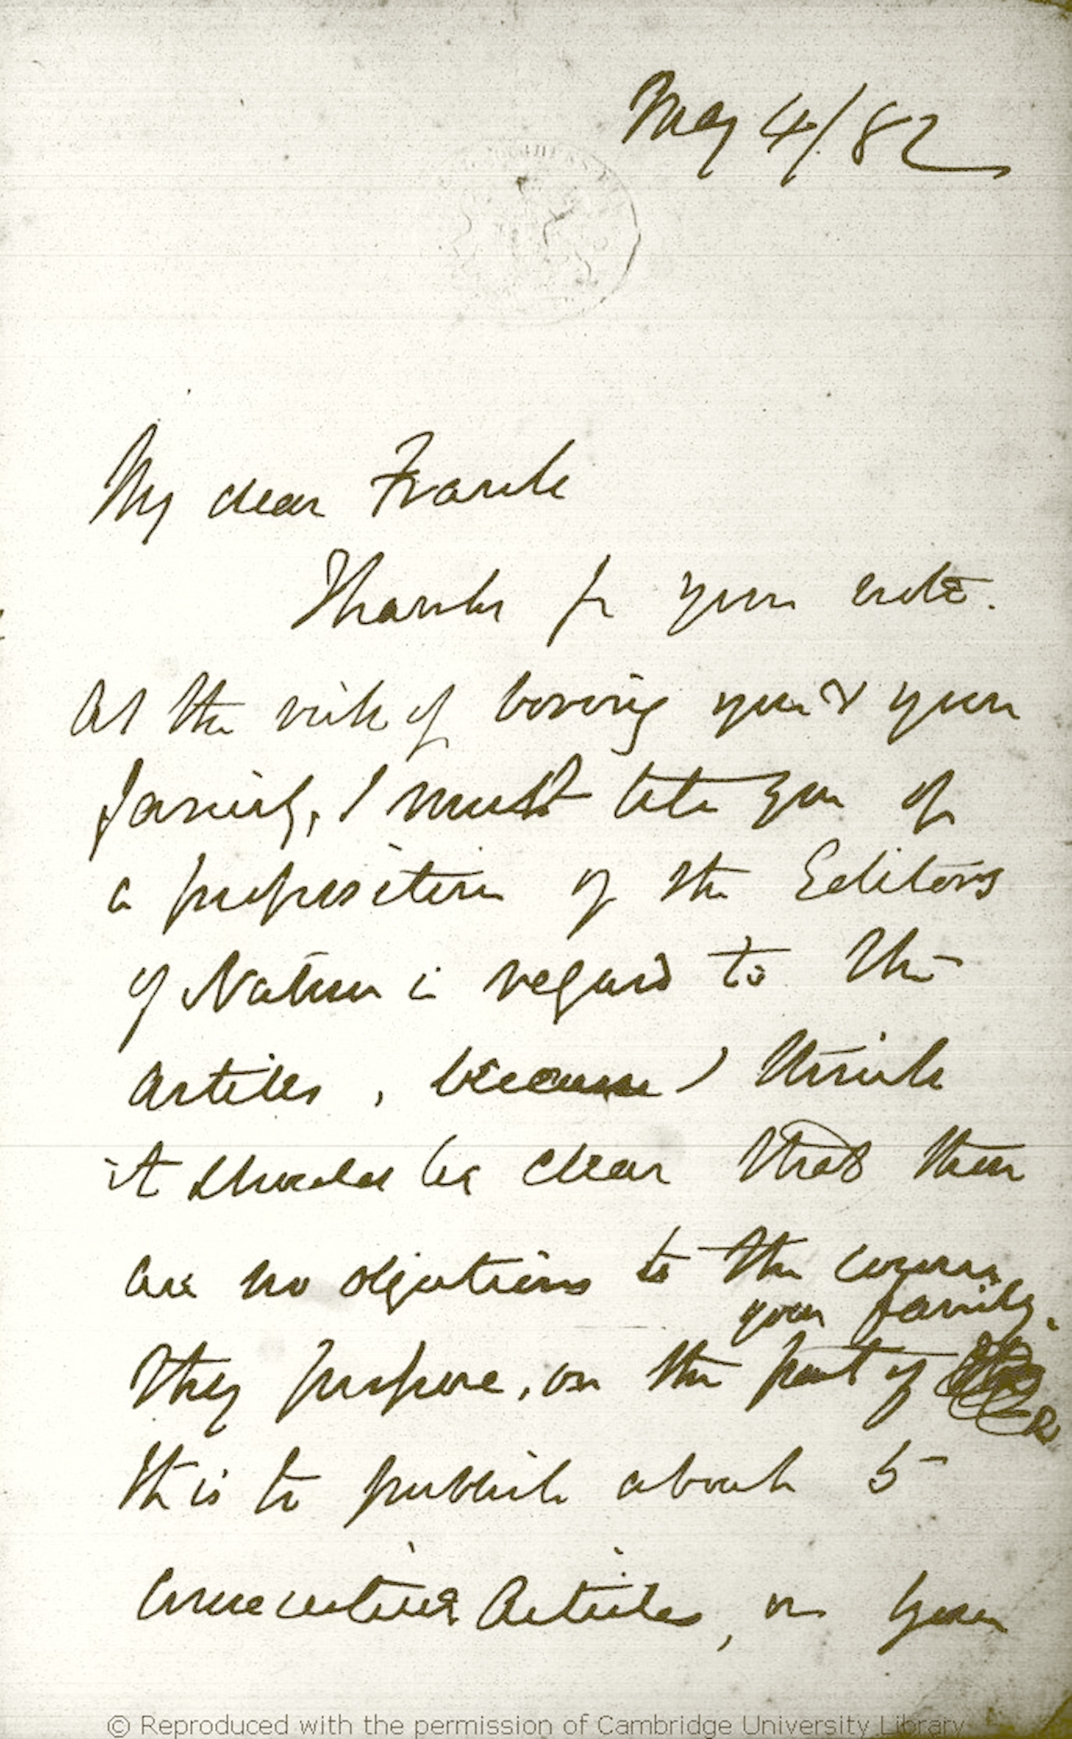 May 4/82
My dear Frank
Thanks for your note.
At the risk of boring you & your
family, I must tell you of
a proposition of the Editors
of Nature in regard to the
Articles, because I think
it should be clear that there
are no objections to the course
your family.
they propose, on the part of
It is to publish about 5
consecutive Articles, on your
© Reproduced with the permission of Cambridge University Library